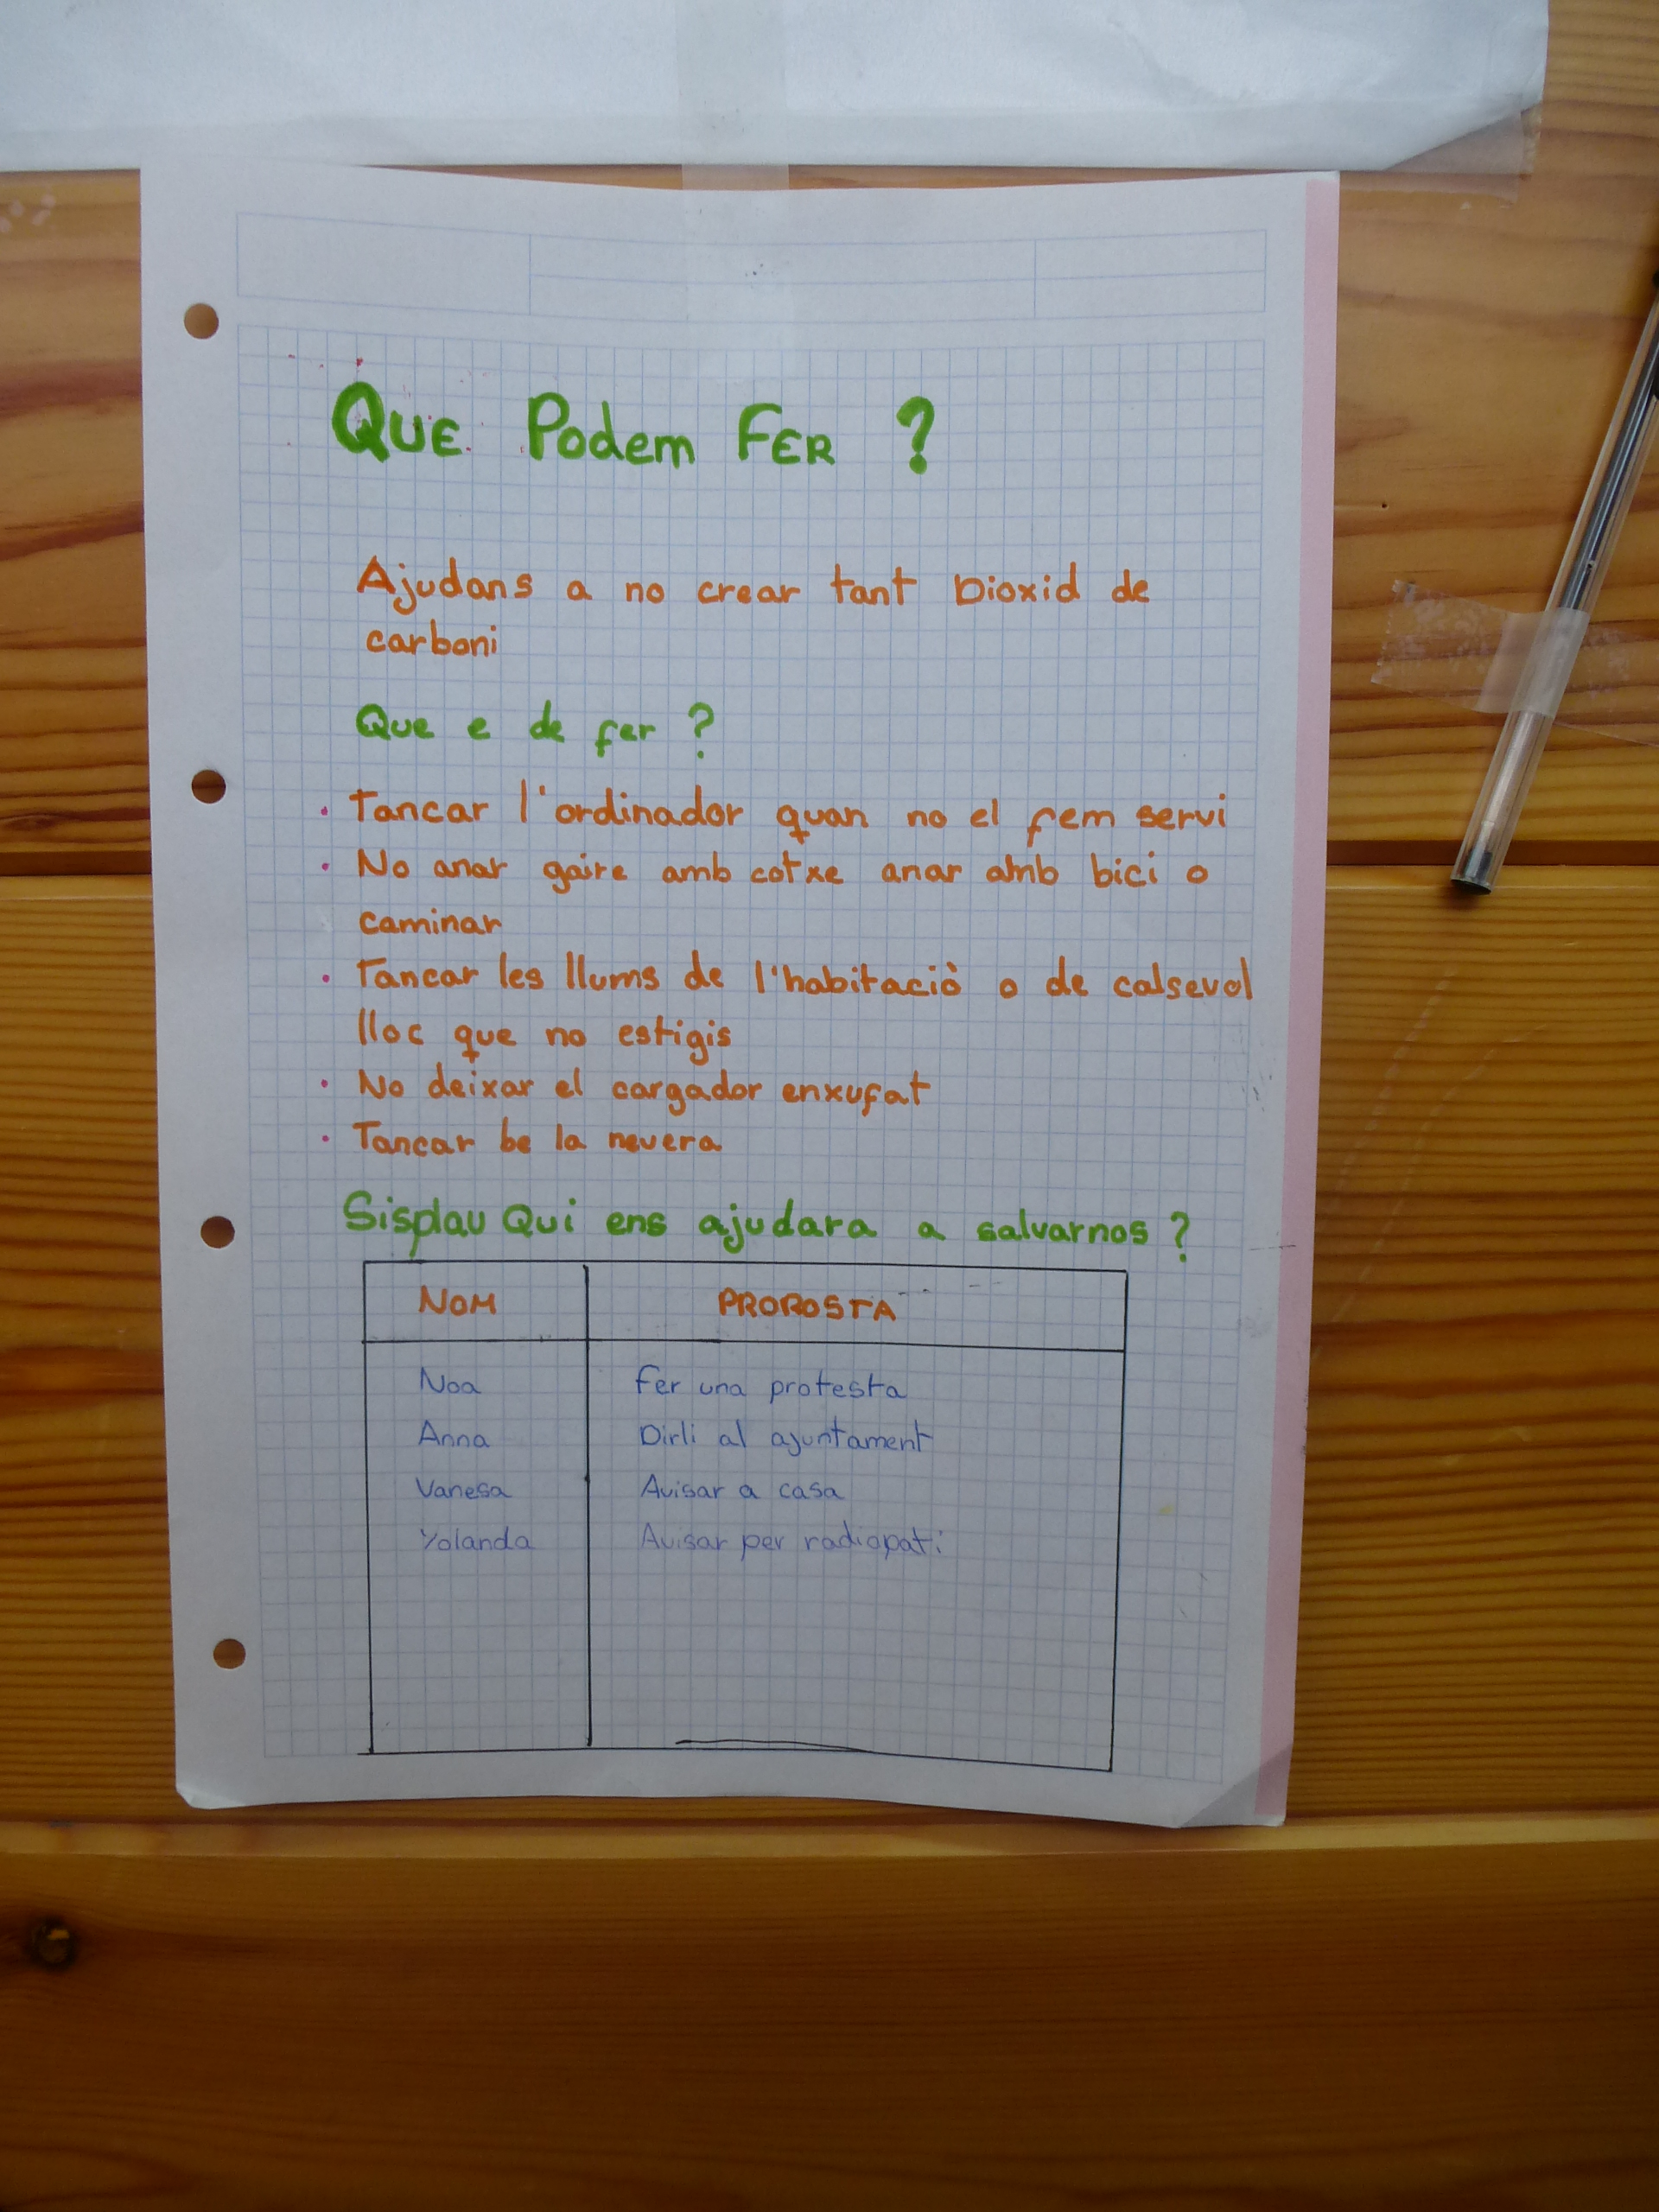 QUE Podem FER ?
Ajudans a no crear tant Dioxid de
carboni
Que e de fer ?
· Tancar l'ordinador quan no el fem servi
· No anar gaire amb cotxe anar amb bici o
caminar
· Tancar les llums de l'habitaciò o de calsevol
lloc que no estigis
· No deixar el cargador enxufat
· Tancar be la nevera
Sisplau Qui ens ajudara a salvarnos ?
NOM PROPOSTA
Noa Fer una protesta
Anna Dirli al ajuntament
Vanesa Avisar a casa
Yolanda Avisar per radiopati